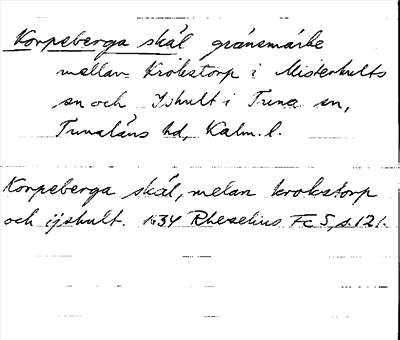 Korpeberga skäl gränsmärke
mellan Krokstorp i Misterhults
sn och Ishult i Tuna sn,
Tunaläns hd, Kalm. l.
Korpeberga skäl, melan krokstorp
och ijshult. 1634 Rhezelius Fc 5, s. 121.